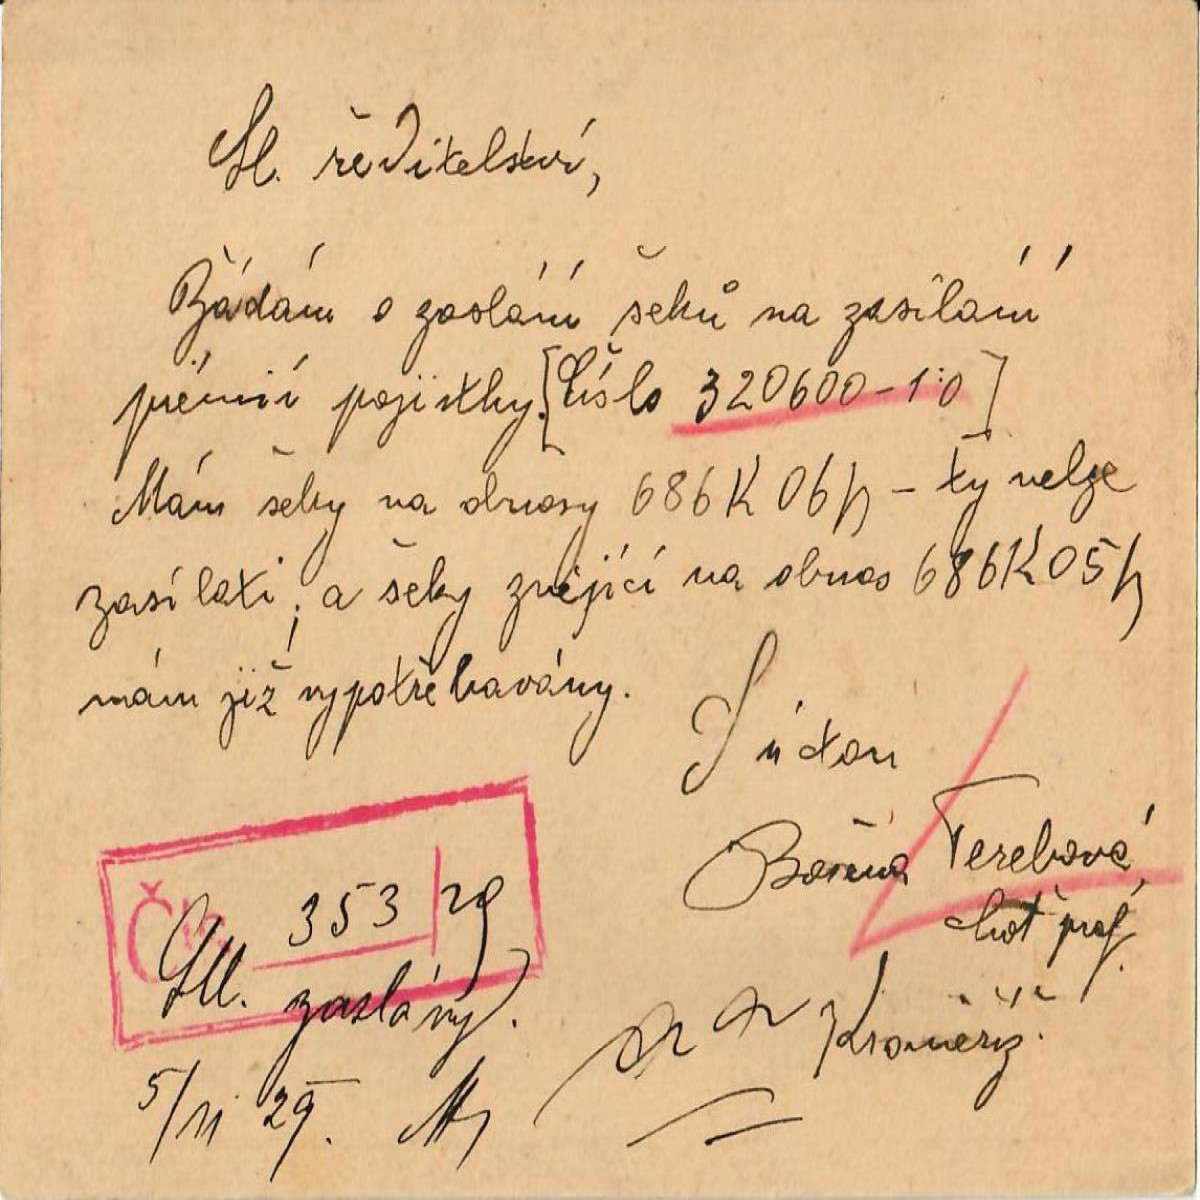 Sl. ředitelství,
Žádám o zaslání šeků na zasílání
prémií pojistky. [Číslo 320600-1:0]
Mám šeky na obnosy 686K 06h – ty nelze
zasílati; a šeky znějící na obnos 686K 05h
mám již vypotřebovány.
S úctou
Božena Terebová,
choť prof.
Kroměříž.
Čís. 353/29
zaslány.
5/11 29.